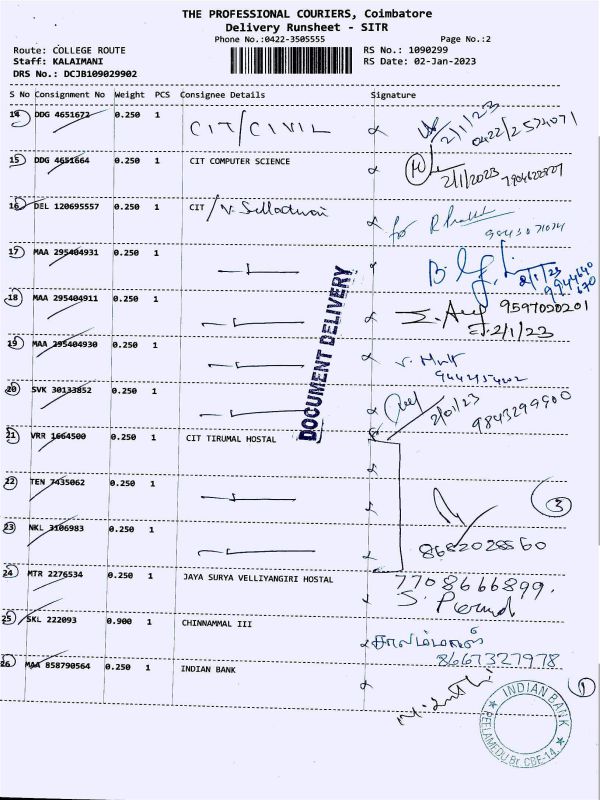 THE PROFESSIONAL COURIERS, Coimbatore
Delivery Runsheet - SITR
Phone No.:0422-3505555 Page No.:2
Route: COLLEGE ROUTE RS No.: 1090299
Staff: KALAIMANI RS Date: 02-Jan-2023
DRS No.: DCJB109029902
S No Consignment No Weight PCS Consignee Details Signature
14 DDG 4651672 0.250 1 CIT/CIVIL 2/1/23
0422/2574071
15 DDG 4651664 0.250 1 CIT COMPUTER SCIENCE
2/1/2023
16 DEL 120695557 0.250 1 CIT/
17 MAA 295404931 0.250 1
2/1/23
9944640
670
18 MAA 295404911 0.250 1 9597020201
2/1/23
19 MAA 295404930 0.250 1
20 SVK 30133852 0.250 1 2/01/23
9843299900
21 VRR 1664500 0.250 1 CIT TIRUMAL HOSTAL
22 TEN 7435062 0.250 1
3
23 NKL 3106983 0.250 1
8682028560
24 MTR 2276534 0.250 1 JAYA SURYA VELLIYANGIRI HOSTAL 7708666899.
25 SKL 222093 0.900 1 CHINNAMMAL III
8667327978
26 MAA 858790564 0.250 1 INDIAN BANK
1
DOCUMENT DELIVERY
INDIAN BANK
PEELAMEDU Br. CBE-14.